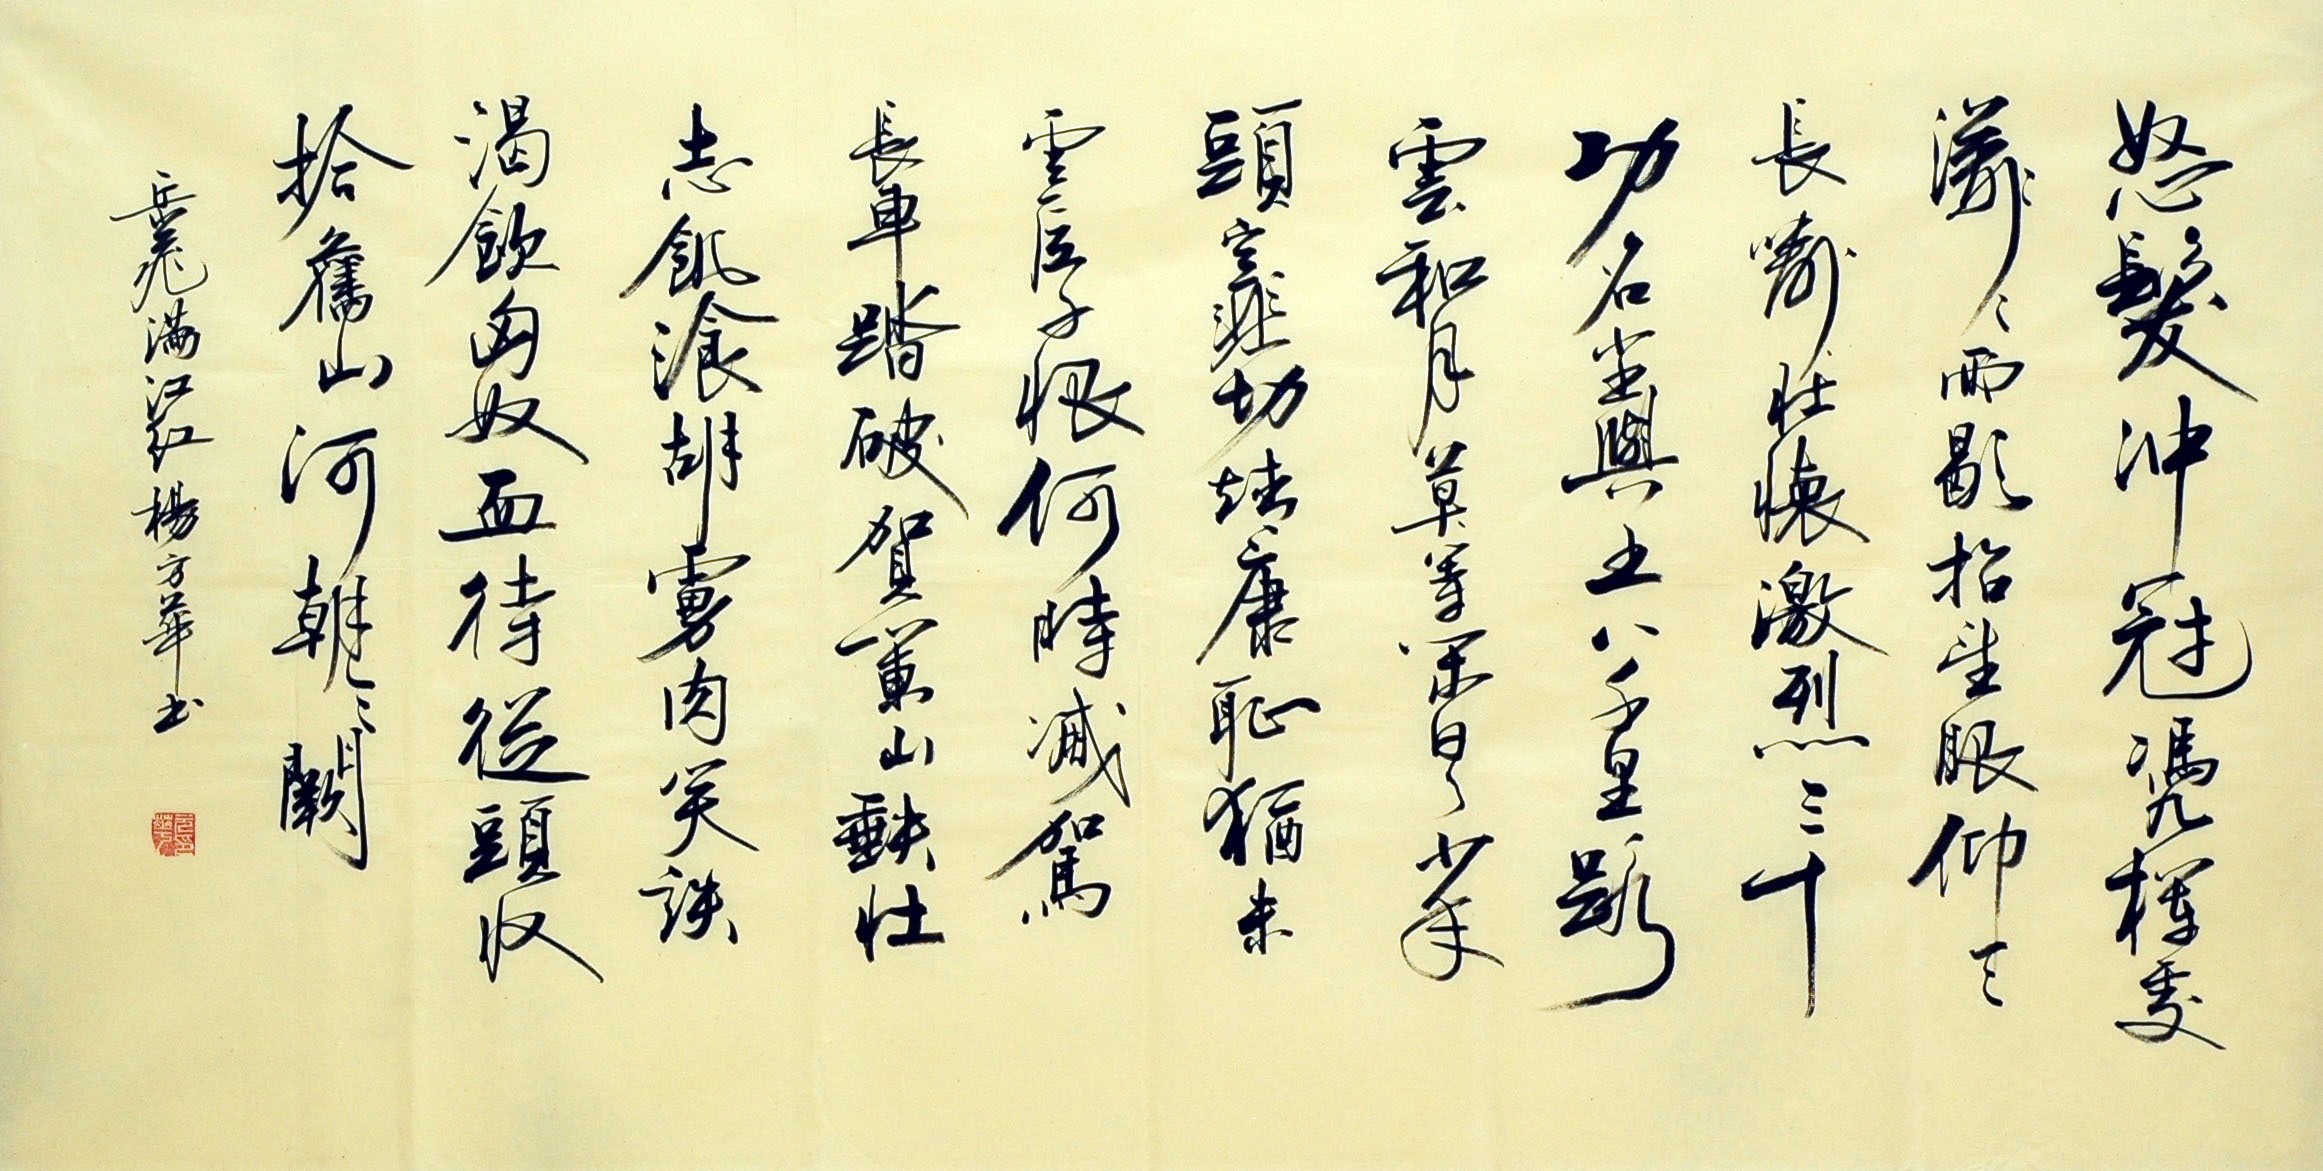 怒髮冲冠凴欄處
瀟〻雨歇抬望眼仰天
長嘯壯懷激烈三十
功名塵與土八千里路
雲和月莫等閑白了少年
頭空悲切靖康恥猶未
雪臣子恨何時滅駕
長車踏破賀蘭山缺壯
志飢湌胡虜肉笑談
渴飲匈奴血待從頭収
拾舊山河朝天闕
岳飛滿江紅 楊方華书